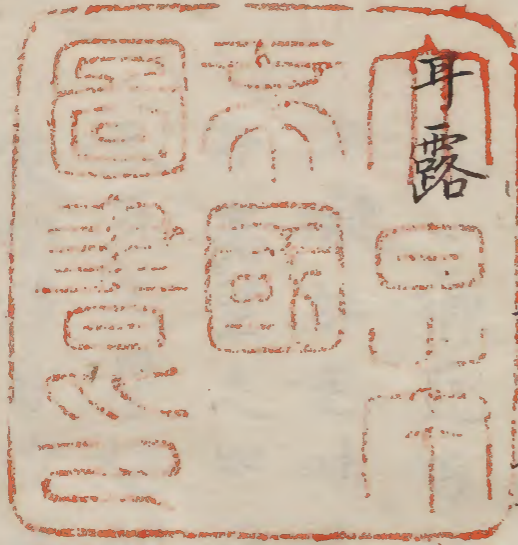 耳露
大日本
帝國
圖書印